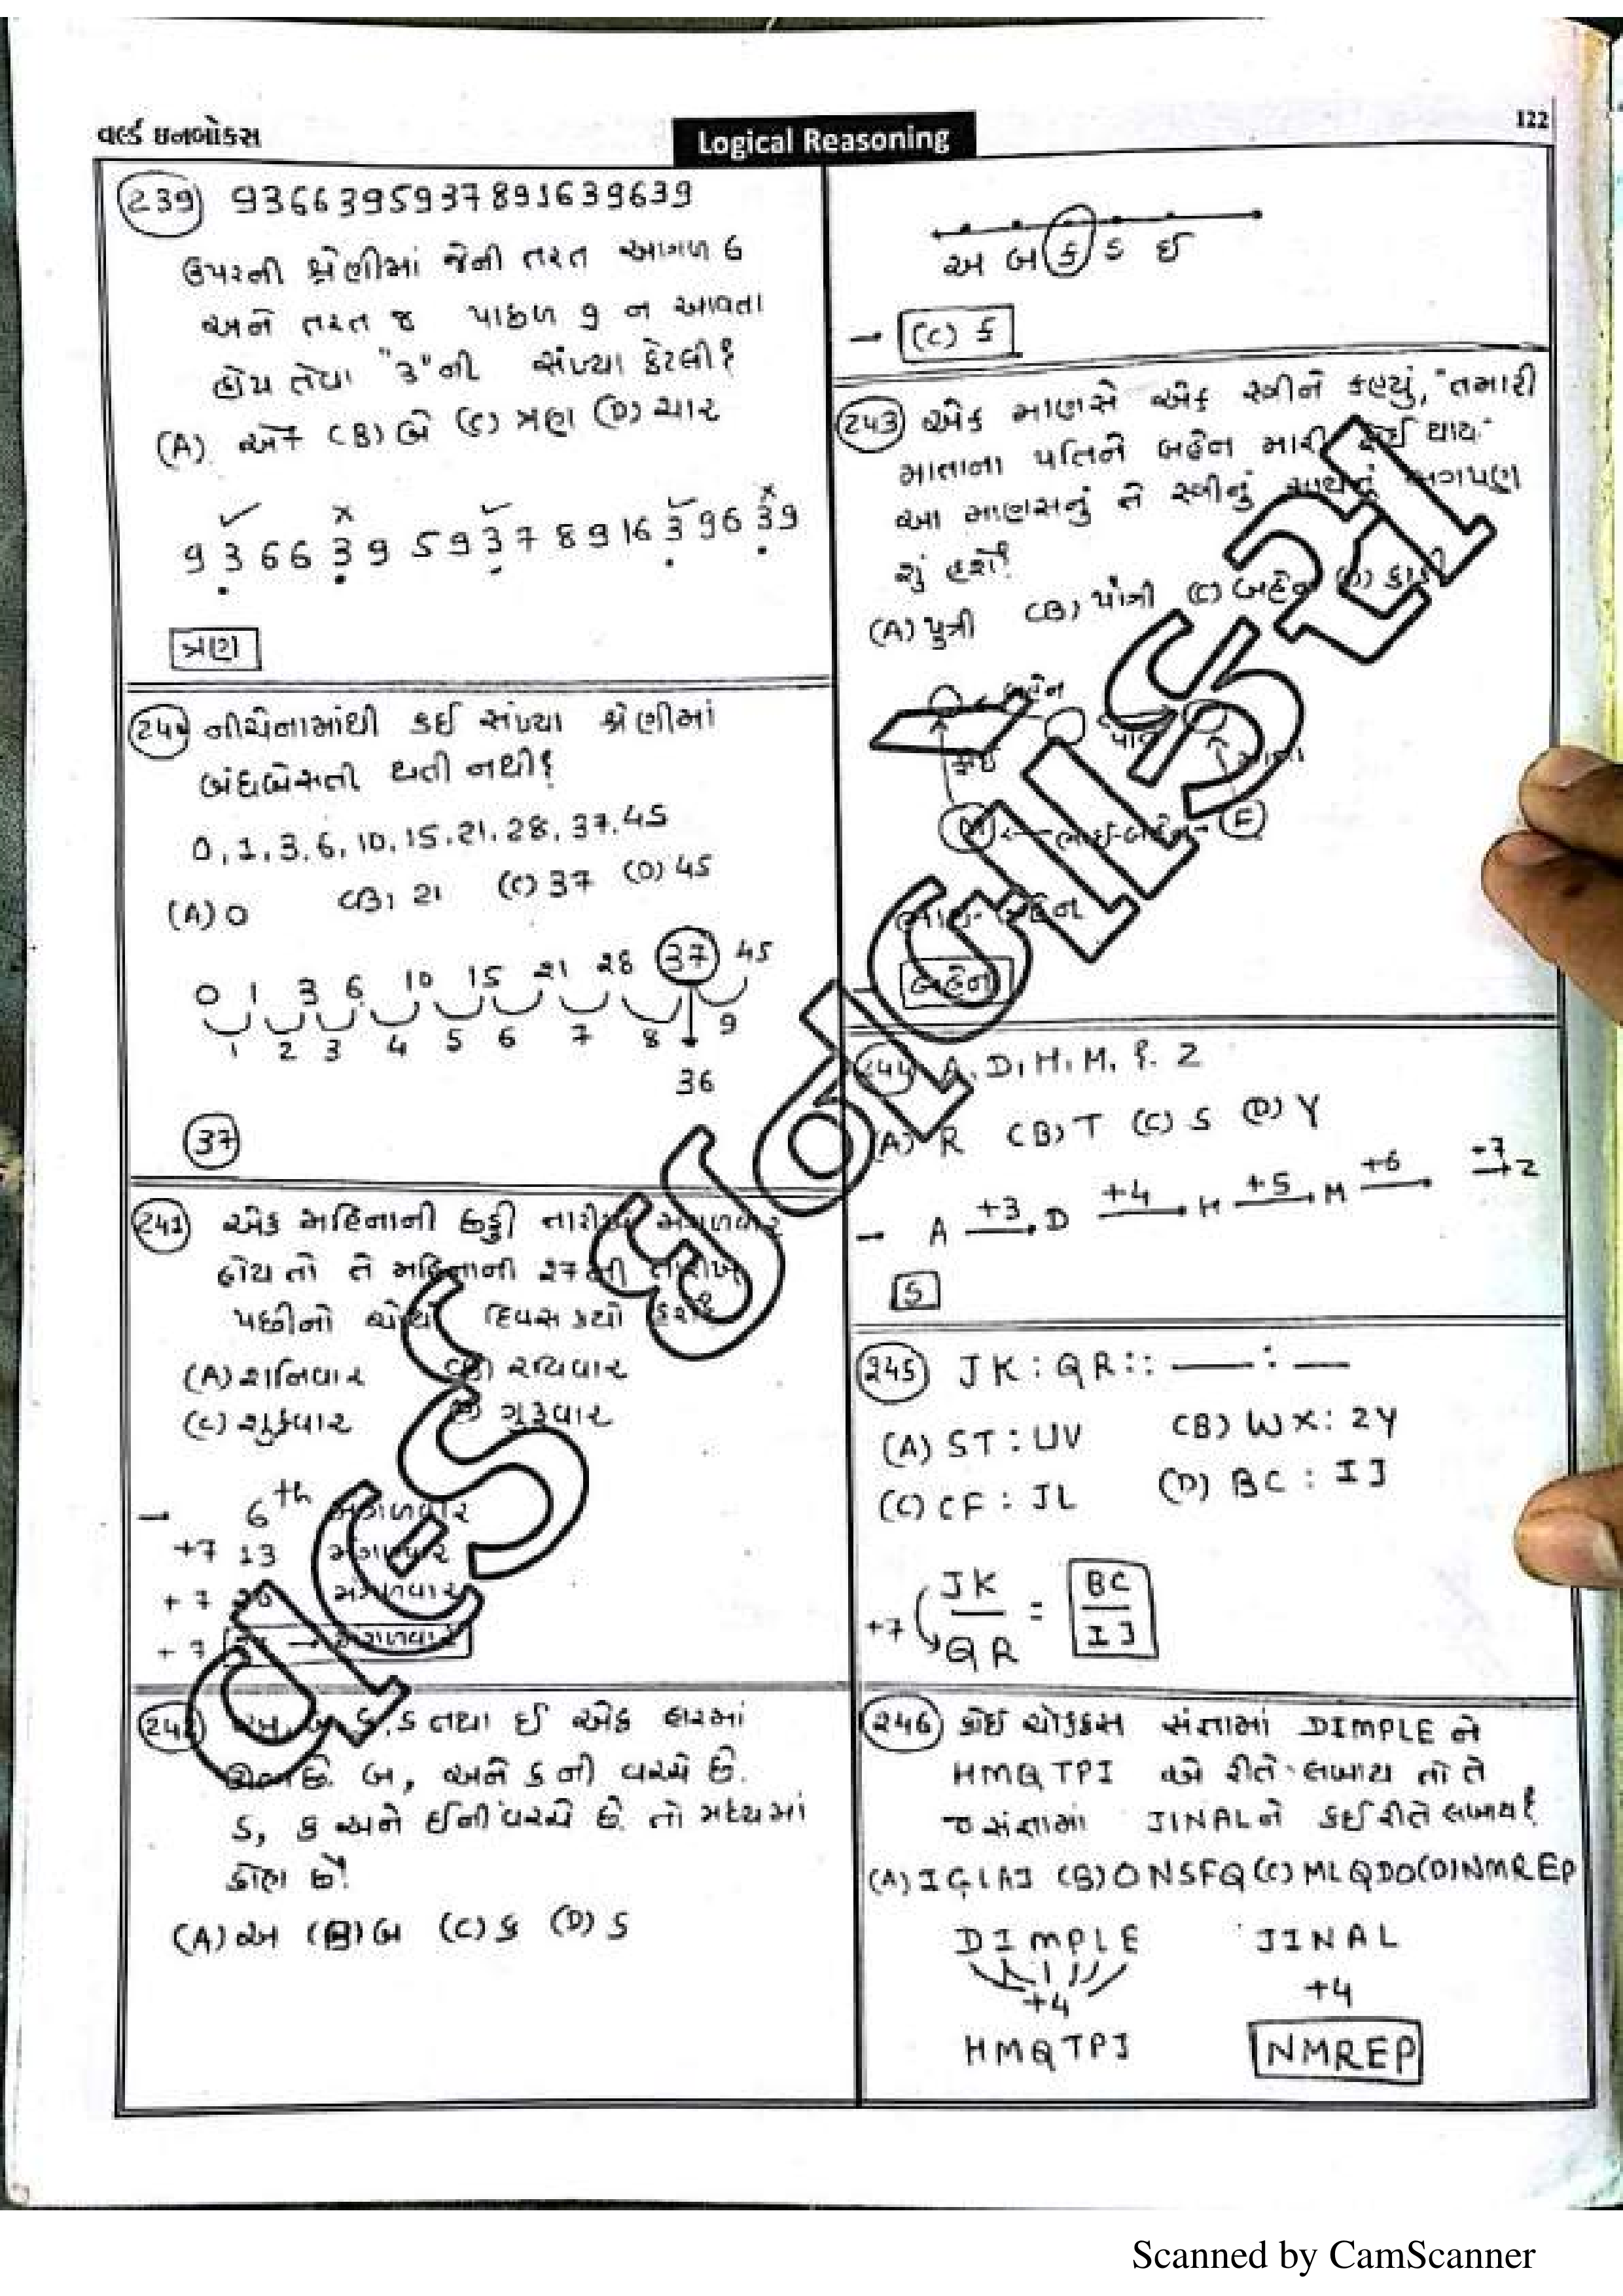 વર્લ્ડ ઇનબોક્સ
Logical Reasoning
122
239 93663959378916396 39
ઉપરની શ્રેણીમાં જેની તરત આગળ 6
અને તરત જ પાછળ 9 ન આવતા
હોય તેવા "3"ની સંખ્યા કેટલી?
(A) એક (B) બે (C) ત્રણ (D) ચાર
9 3 6 6 3 9 5 9 3 7 8 9 1 6 3 9 6 3 9
ત્રણ
નીચેનામાંથી કઈ સંખ્યા શ્રેણીમાં
બંધબેસતી થતી નથી?
0, 1, 3, 6, 10, 15, 21, 28, 37, 45
(A) 0 (B) 21 (C) 37 (D) 45
0 1 3 6 10 15 21 28 37 45
1 2 3 4 5 6 7 8 9
36
37
241 એક મહિનાની છઠ્ઠી તારીખ મંગળવાર
હોય તો તે મહિનાની 27મી તારીખ
પછીનો ચોથો દિવસ કયો હશે?
(A) શનિવાર (B) રવિવાર
(C) શુક્રવાર (D) ગુરૂવાર
6th મંગળવાર
+7 13 મંગળવાર
+7 20 મંગળવાર
+7 → મંગળવાર
ક, ડ તથા ઈ એક હારમાં
બ, અને ક ની વચ્ચે છે.
ડ, ક અને ઈની વચ્ચે છે. તો મધ્યમાં
કોણ છે?
(A) અ (B) બ (C) ક (D) ડ
અ બ ક ડ ઈ
→ (C) ક
243 એક માણસે એક સ્ત્રીને કહ્યું, "તમારી
માતાના પતિને બહેન મારી ફોઈ થાય"
આ માણસનું તે સ્ત્રીનું સાથેનું સગપણ
શું હશે?
(A) પુત્રી (B) પૌત્રી (C) બહેન (D) કાકી
બહેન
ફોઈ
M ← ભાઈ-બહેન- F
બહેન
244 A, D, H, M, ?. Z
(A) R (B) T (C) S (D) Y
- A +3 D +4 H +5 M +6 +7 Z
S
245 JK : QR :: — : —
(A) ST : UV (B) WX : ZY
(C) CF : JL (D) BC : IJ
+7 JK = BC
QR IJ
246 કોઈ ચોક્કસ સંજ્ઞામાં DIMPLE ને
HMQTPI એ રીતે લખાય તો તે
જ સંજ્ઞામાં JINALને કઈ રીતે લખાય?
(B) ONSFQ (C) MLQDO (D) NMREP
DIMPLE JINAL
+4 +4
HMQTPI NMREP
Scanned by CamScanner